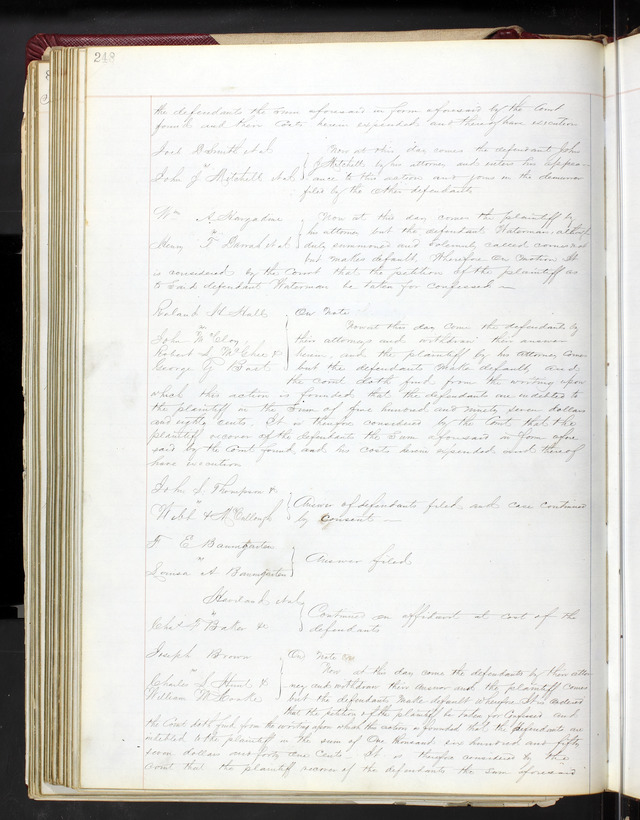 248
the defendants the sum aforesaid in form aforesaid by the Court
found and their Costs herein expended and thereof have execution
et al
vs
John J Mitchell et al
Now at this day comes the defendant John
J Mitchell by his attorney and enters his appear-
ance to this action and joins in the demurrer
filed by the other defendants
Wm A
vs
Henry T et al
Now at this day comes the plaintiff by
his attorney but the defendant Waterman, altho
duly summoned and solemnly called comes not
but makes default. Wherefore on motion It
is considered by the Court that the petition of the plaintiff as
to said defendant Waterman be taken for confessed
Roland H Hall
vs
John McClay
Robert S McGhee &
George G Bast
On Note
Now at this day come the defendants by
their attorneys and withdraw their answer
herein, and the plaintiff by his attorney comes
but the defendants make default, and
the Court doth find from the writing upon
which this action is founded that the defendants are indebted to
the plaintiff in the sum of five hundred and ninety seven dollars
and eighty cents. It is therefore considered by the Court that the
plaintiff recover of the defendants the sum aforesaid in form afore
said by the Court found, and his costs herein expended and thereof
have execution
John S Thompson &
vs
Welsh & McCullough
Answer of defendants filed and case continued
by consent
F E Baumgarten
vs
Louisa A Baumgarten
Answer filed
vs
Chas F Baker &
Continued on affidavit at cost of the
defendants
Joseph Brown
vs
Charles S &
William W
On Note
Now at this day come the defendants by their attor
ney and withdraw their answer and the plaintiff comes
but the defendants make default Wherefore It is ordered
that the petition of the plaintiff be taken for confessed and
the Court doth find from the writing upon which this action is founded that the defendants are
indebted to the plaintiff in the sum of One thousand hundred and fifty
seven dollars and forty one cents. It is therefore considered by the
Court that the plaintiff recover of the defendants the sum aforesaid